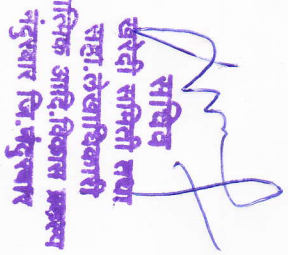 सचिव
खरेदी समिती तथा
सहा.लेखाधिकारी
आदि.विकास प्रकल्प
नंदुरबार जि.नंदुरबार